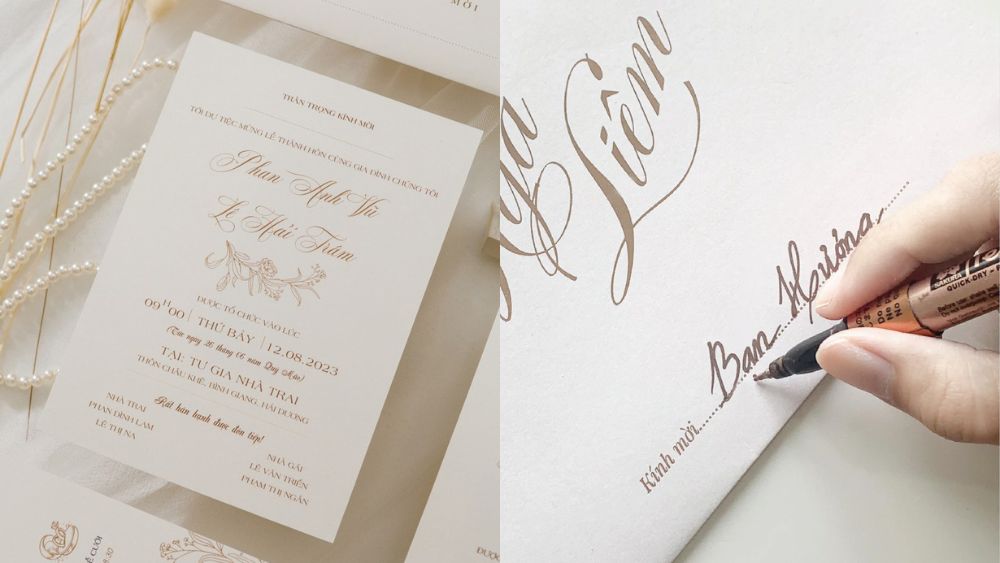 MỜI
TRÂN TRỌNG KÍNH MỜI
TỚI DỰ TIỆC MỪNG LỄ THÀNH HÔN CÙNG GIA ĐÌNH CHÚNG TÔI
Phan Anh Vũ
Lê Hải Trâm
ĐƯỢC TỔ CHỨC VÀO LÚC
09H00 | THỨ BẢY | 12.08.2023
(Tức ngày 26 tháng 6 năm Quý Mão)
TẠI: TƯ GIA NHÀ TRAI
THÔN CHÂU KHÊ, BÌNH GIANG, HẢI DƯƠNG
Rất hân hạnh được đón tiếp!
NHÀ TRAI
PHAN ĐÌNH LAM
LÊ THỊ NA
NHÀ GÁI
LÊ VĂN TRIỂN
PHẠM THỊ NGÂN
CƯỚI
ĐƯỢC
Liêm
Kính mời
Bạn Hương
SAKURA
QUICK-DRY